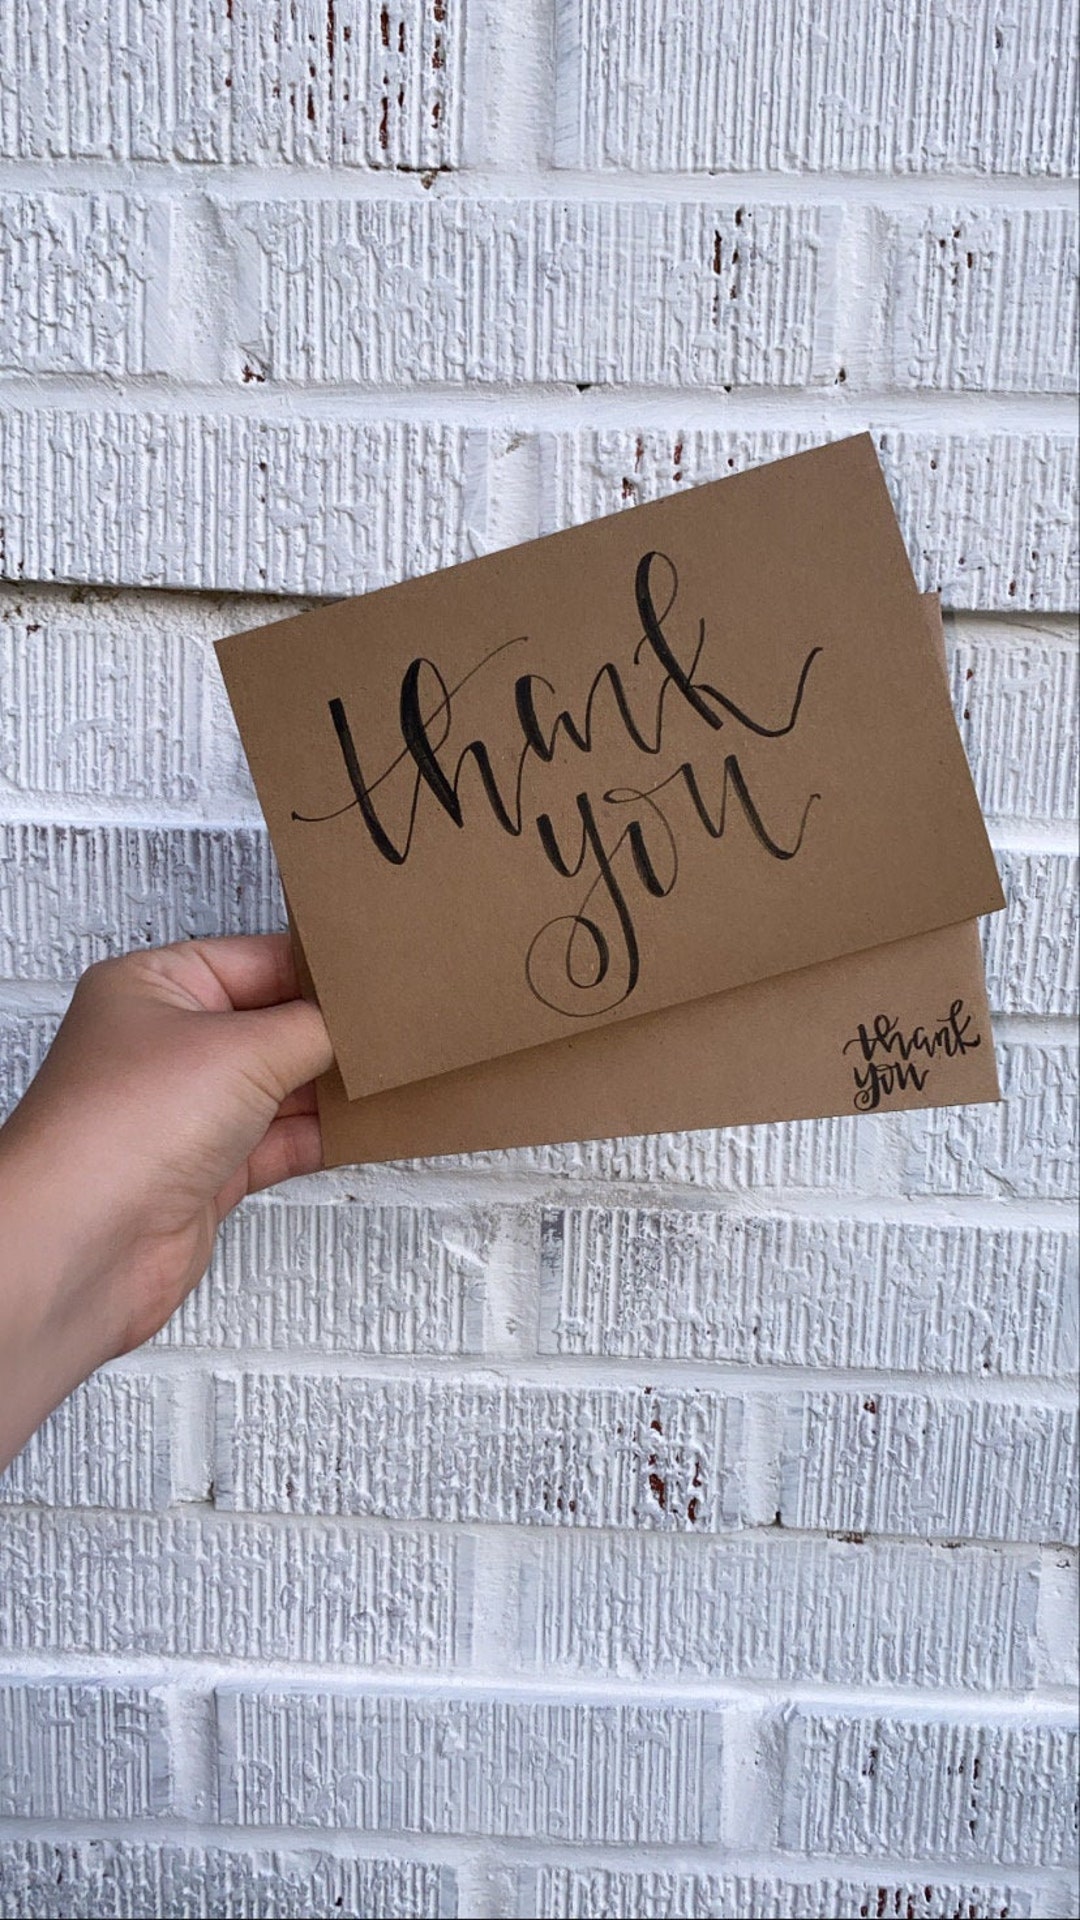 thank
you
thank
you